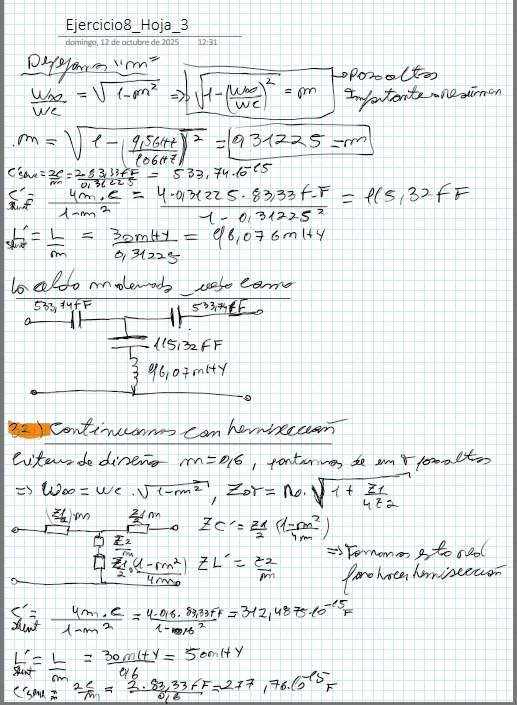 Ejercicio8_Hoja_3
domingo, 12 de octubre de 2025 12:31
"m"
W∞/Wc = √(1-m²) => √(1-(W∞/Wc)²) = m → Pasoaltas
Importante resumen
m = √(1-(9,5GHz/10GHz)²) = 0,31225 = m
C'serie = 2C/m = 2·83,33fF/0,31225 = 533,74·10^-15
C'shunt = 4m·C/(1-m²) = 4·0,31225·83,33fF/(1-0,31225²) = 115,32fF
L'shunt = L/m = 30mHy/0,31225 = 96,076mHy
como
533,74fF 533,74fF
115,32fF
96,07mHy
2.2) Continuamos con hemisección
Criterio de diseño m=0,6, partimos de em T pasoaltas
=> W∞ = Wc·√(1-m²), ZoT = Ro·√(1+Z1/4Z2)
(Z1/2)m Z1/2 m ZC' = Z1/2 (1-m²/4m)
Z2/m
Z1/2·(1-m²)/4m ZL' = Z2/m => Tomamos esta red
para hacer hemisección
C'shunt = 4m·C/(1-m²) = 4·0,6·83,33fF/(1-0,6²) = 312,4875·10^-15 F
L'shunt = L/m = 30mHy/0,6 = 50mHy
C'serie = 2C/m = 2·83,33fF/0,6 = 277,76·10^-15 F